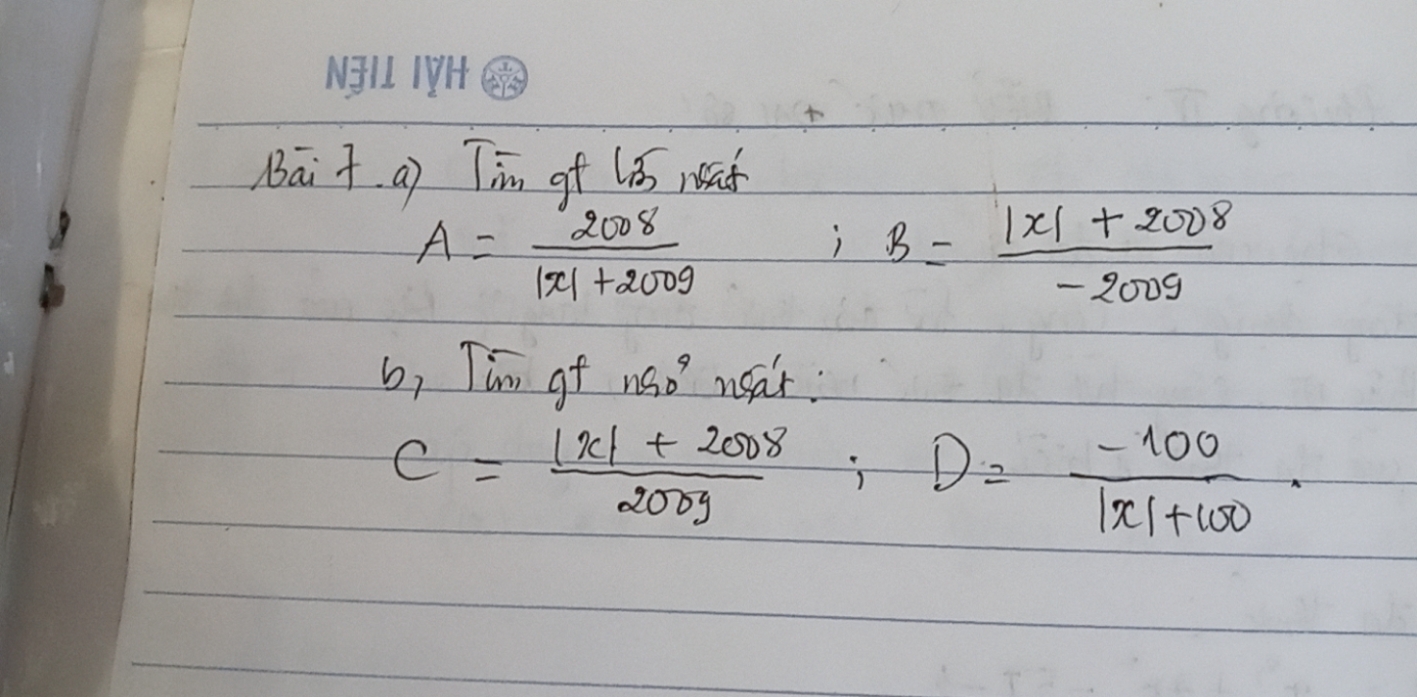 HẢI TIẾN
Bài 7. a) Tìm gt lớn nhất
A = 2008 / |x| + 2009 ; B = |x| + 2008 / -2009
b, Tìm gt nhỏ nhất:
C = |x| + 2008 / 2009 ; D = -100 / |x| + 100 .